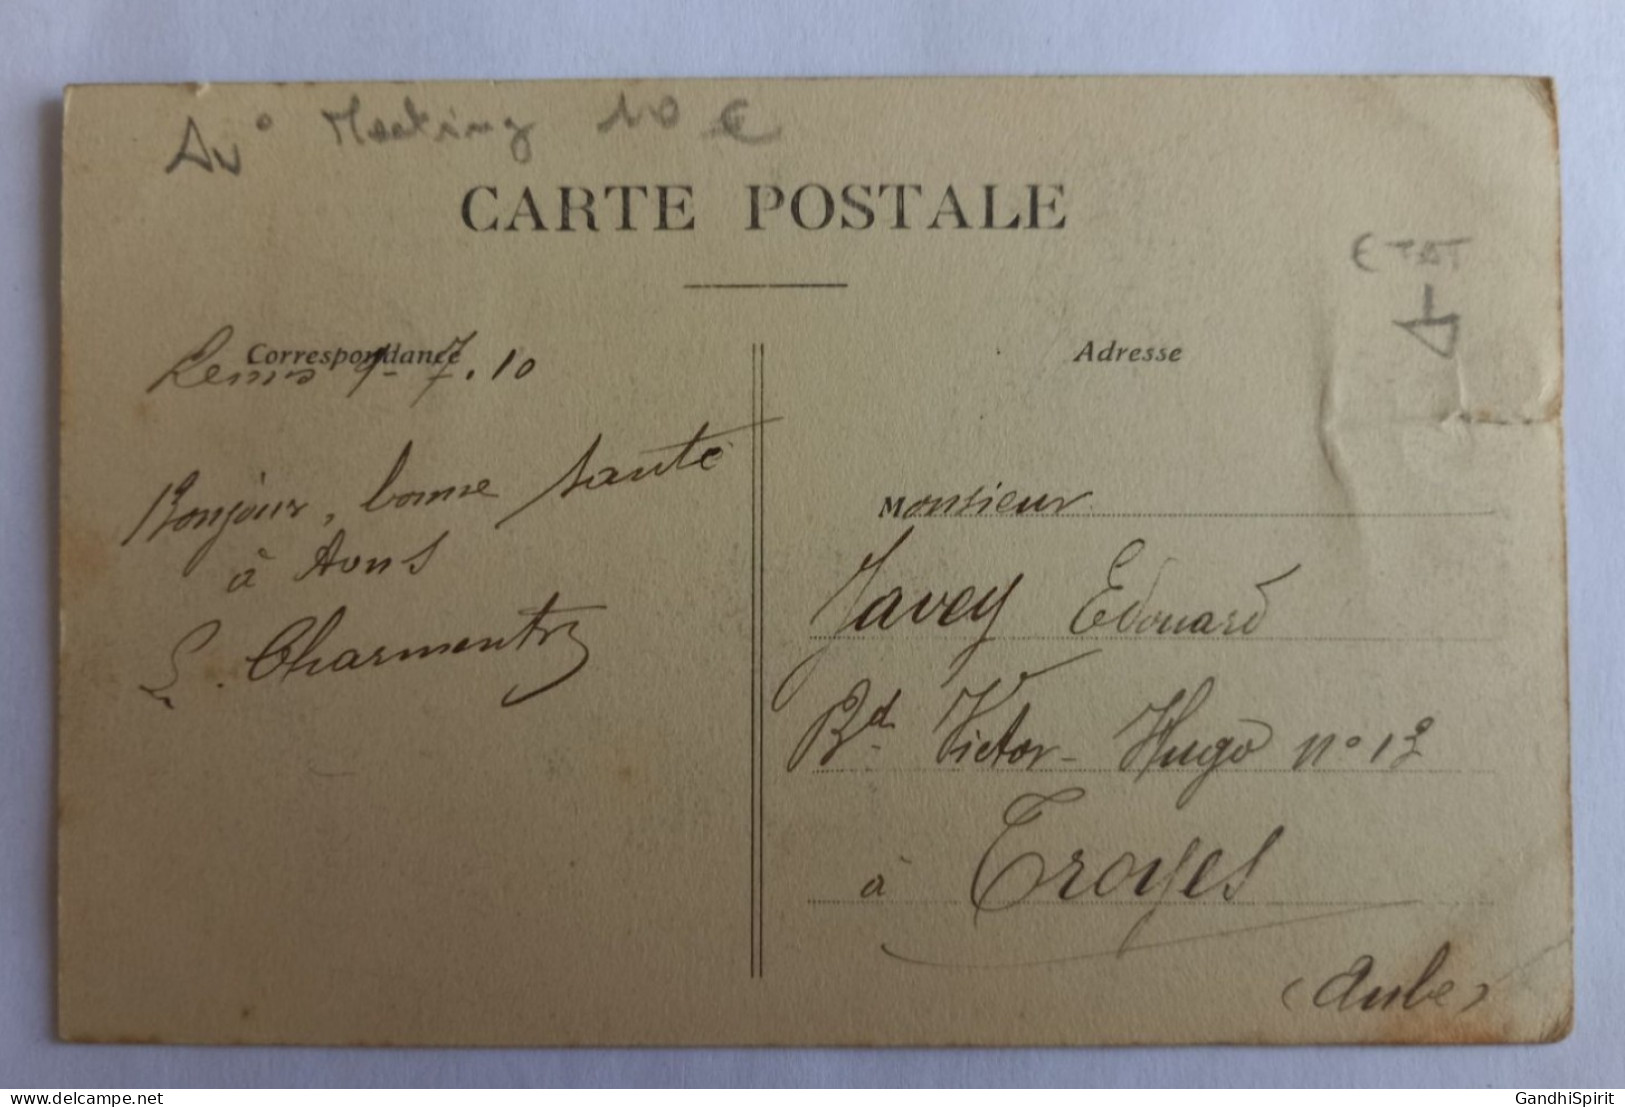 Av° Meeting 10 €
CARTE POSTALE
ETAT
Correspondance
Adresse
Reims 7.10
Bonjour, bonne santé
à tous
L. Charmentry
Monsieur
Javey Edouard
Bd Victor-Hugo n° 12
à Troyes
(Aube)
delcampe.net
GandhiSpirit